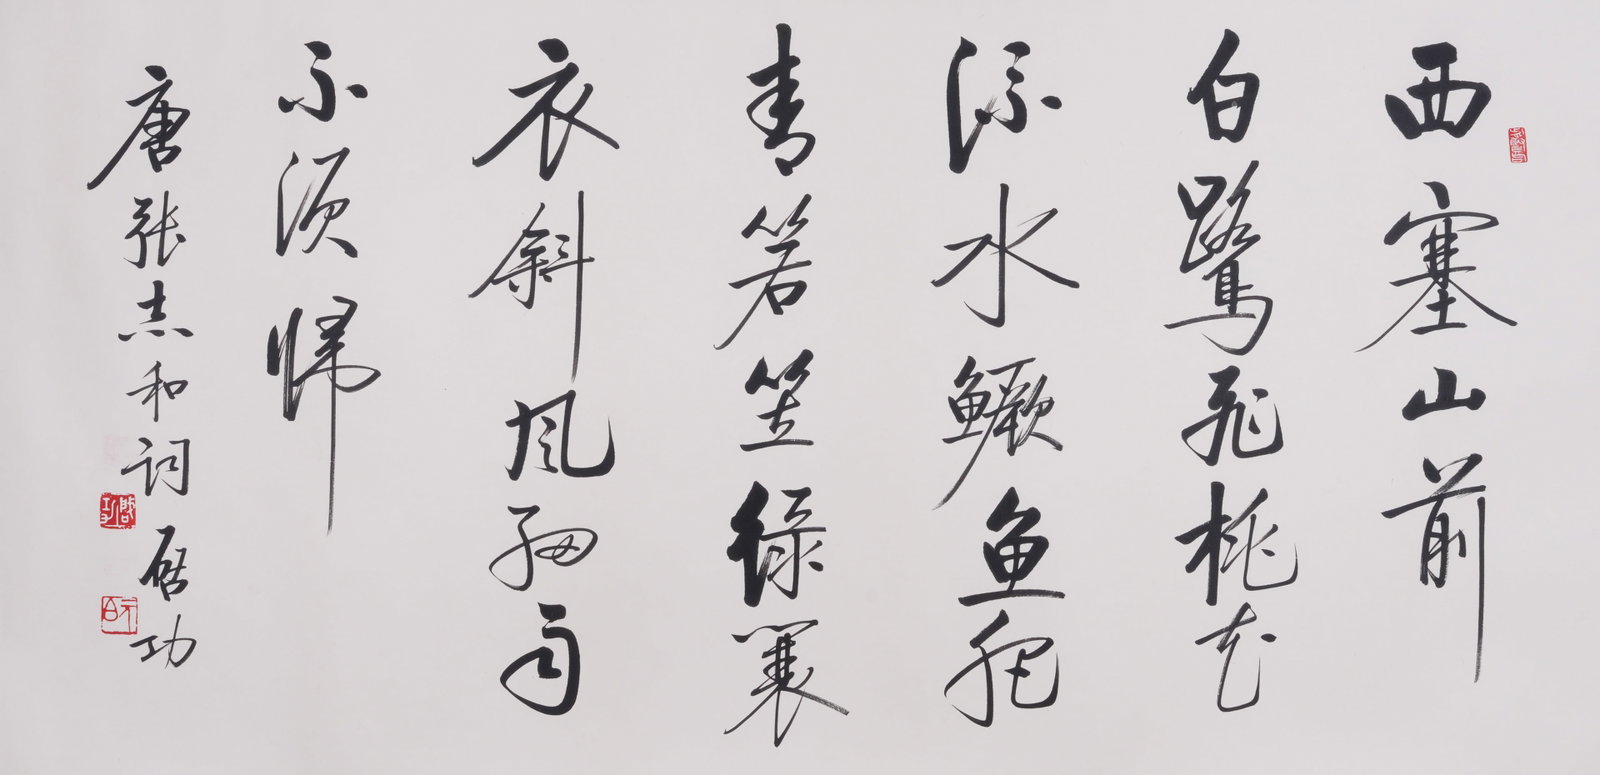 西塞山前
白鷺飛桃花
流水鳜鱼肥
青箬笠绿蓑
衣斜风细雨
不須歸
唐張志和词 啓功
启功